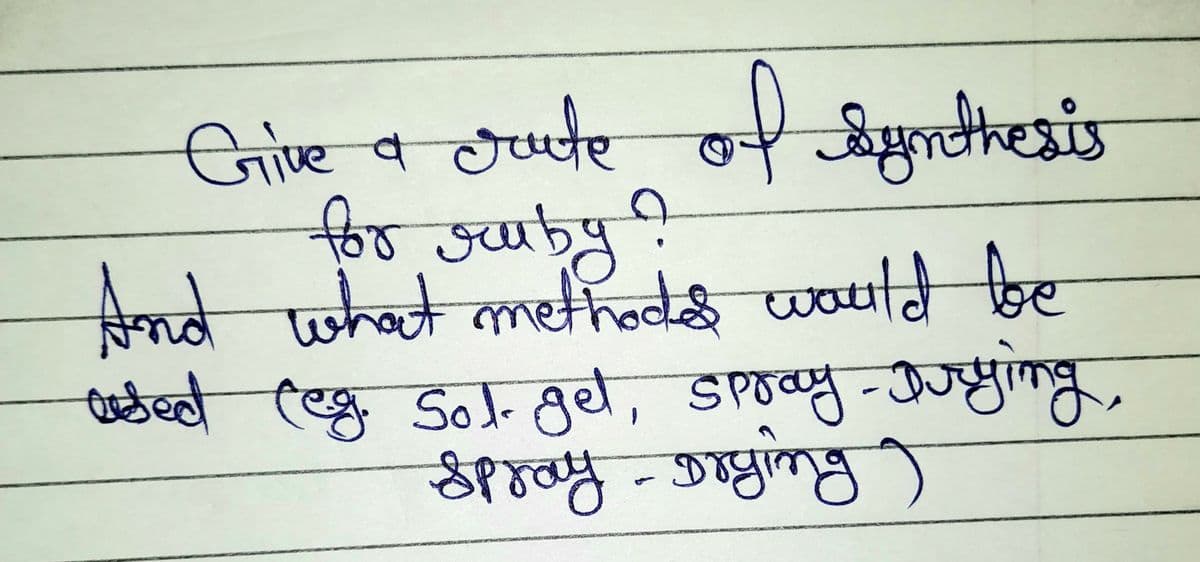 Give a rute of synthesis
for ruby?
And what methods would be
used (eg. Sol-gel, spray-Drying,
spray-Drying)